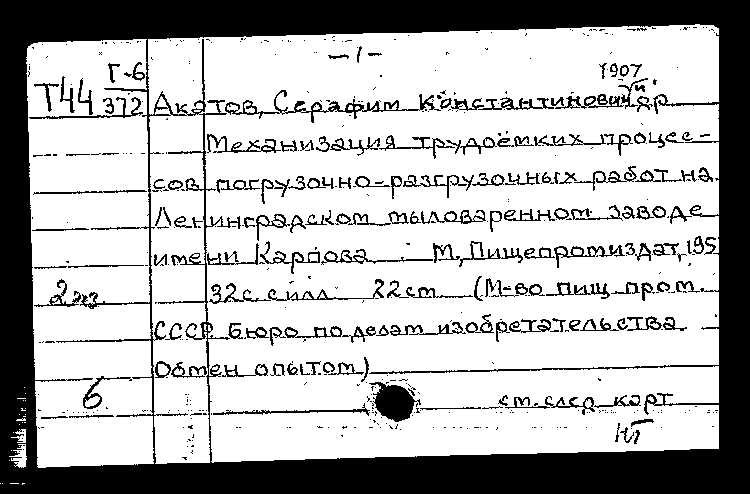 — 1 —
Г-6
Т44 372
1907
Акатов, Серафим Константинович и др.
Механизация трудоёмких процес-
сов погрузочно-разгрузочных работ на
Ленинградском мыловаренном заводе
имени Карпова. М., Пищепромиздат, 195
2 экз. 32 с. с илл. 22 см. (М-во пищ. пром.
СССР. Бюро по делам изобретательства.
Обмен опытом)
6
см. след. карт.